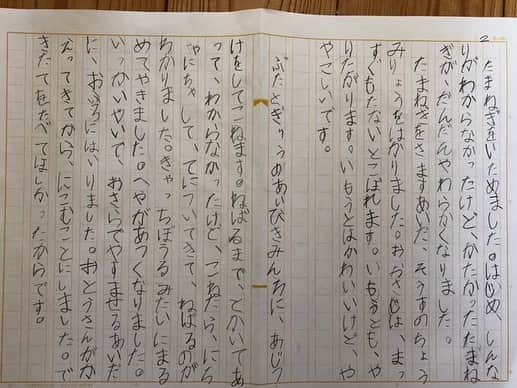 2
たまねぎをいためました。はじめ、しんな
りがわからなかったけど、かたかったたまね
ぎが、だんだんやわらかくなりました。
たまねぎをさますあいだ、そうすのちょう
みりょうをはかりました。おおさじは、まっ
すぐもたないとこぼれます。いもうとも、や
りたがります。いもうとはかわいいけど、や
やこしいです。
ぶたとぎゅうのあいびきみんちに、あじつ
けをしてこねます。ねばるまで、とかいてあ
って、わからなかったけど、こねたら、にち
ゃにちゃして、てについてきて、ねばるのが
わかりました。きゃっちぼうるみたいにまる
めてやきました。へやがあつくなりました。
いっかいやいて、おさらでやすませるあいだ
に、おふろにはいりました。おとうさんがか
えってきてから、にこむことにしました。で
きたてをたべてほしかったからです。